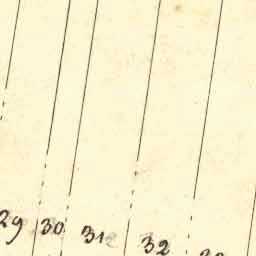 29 30 31 32